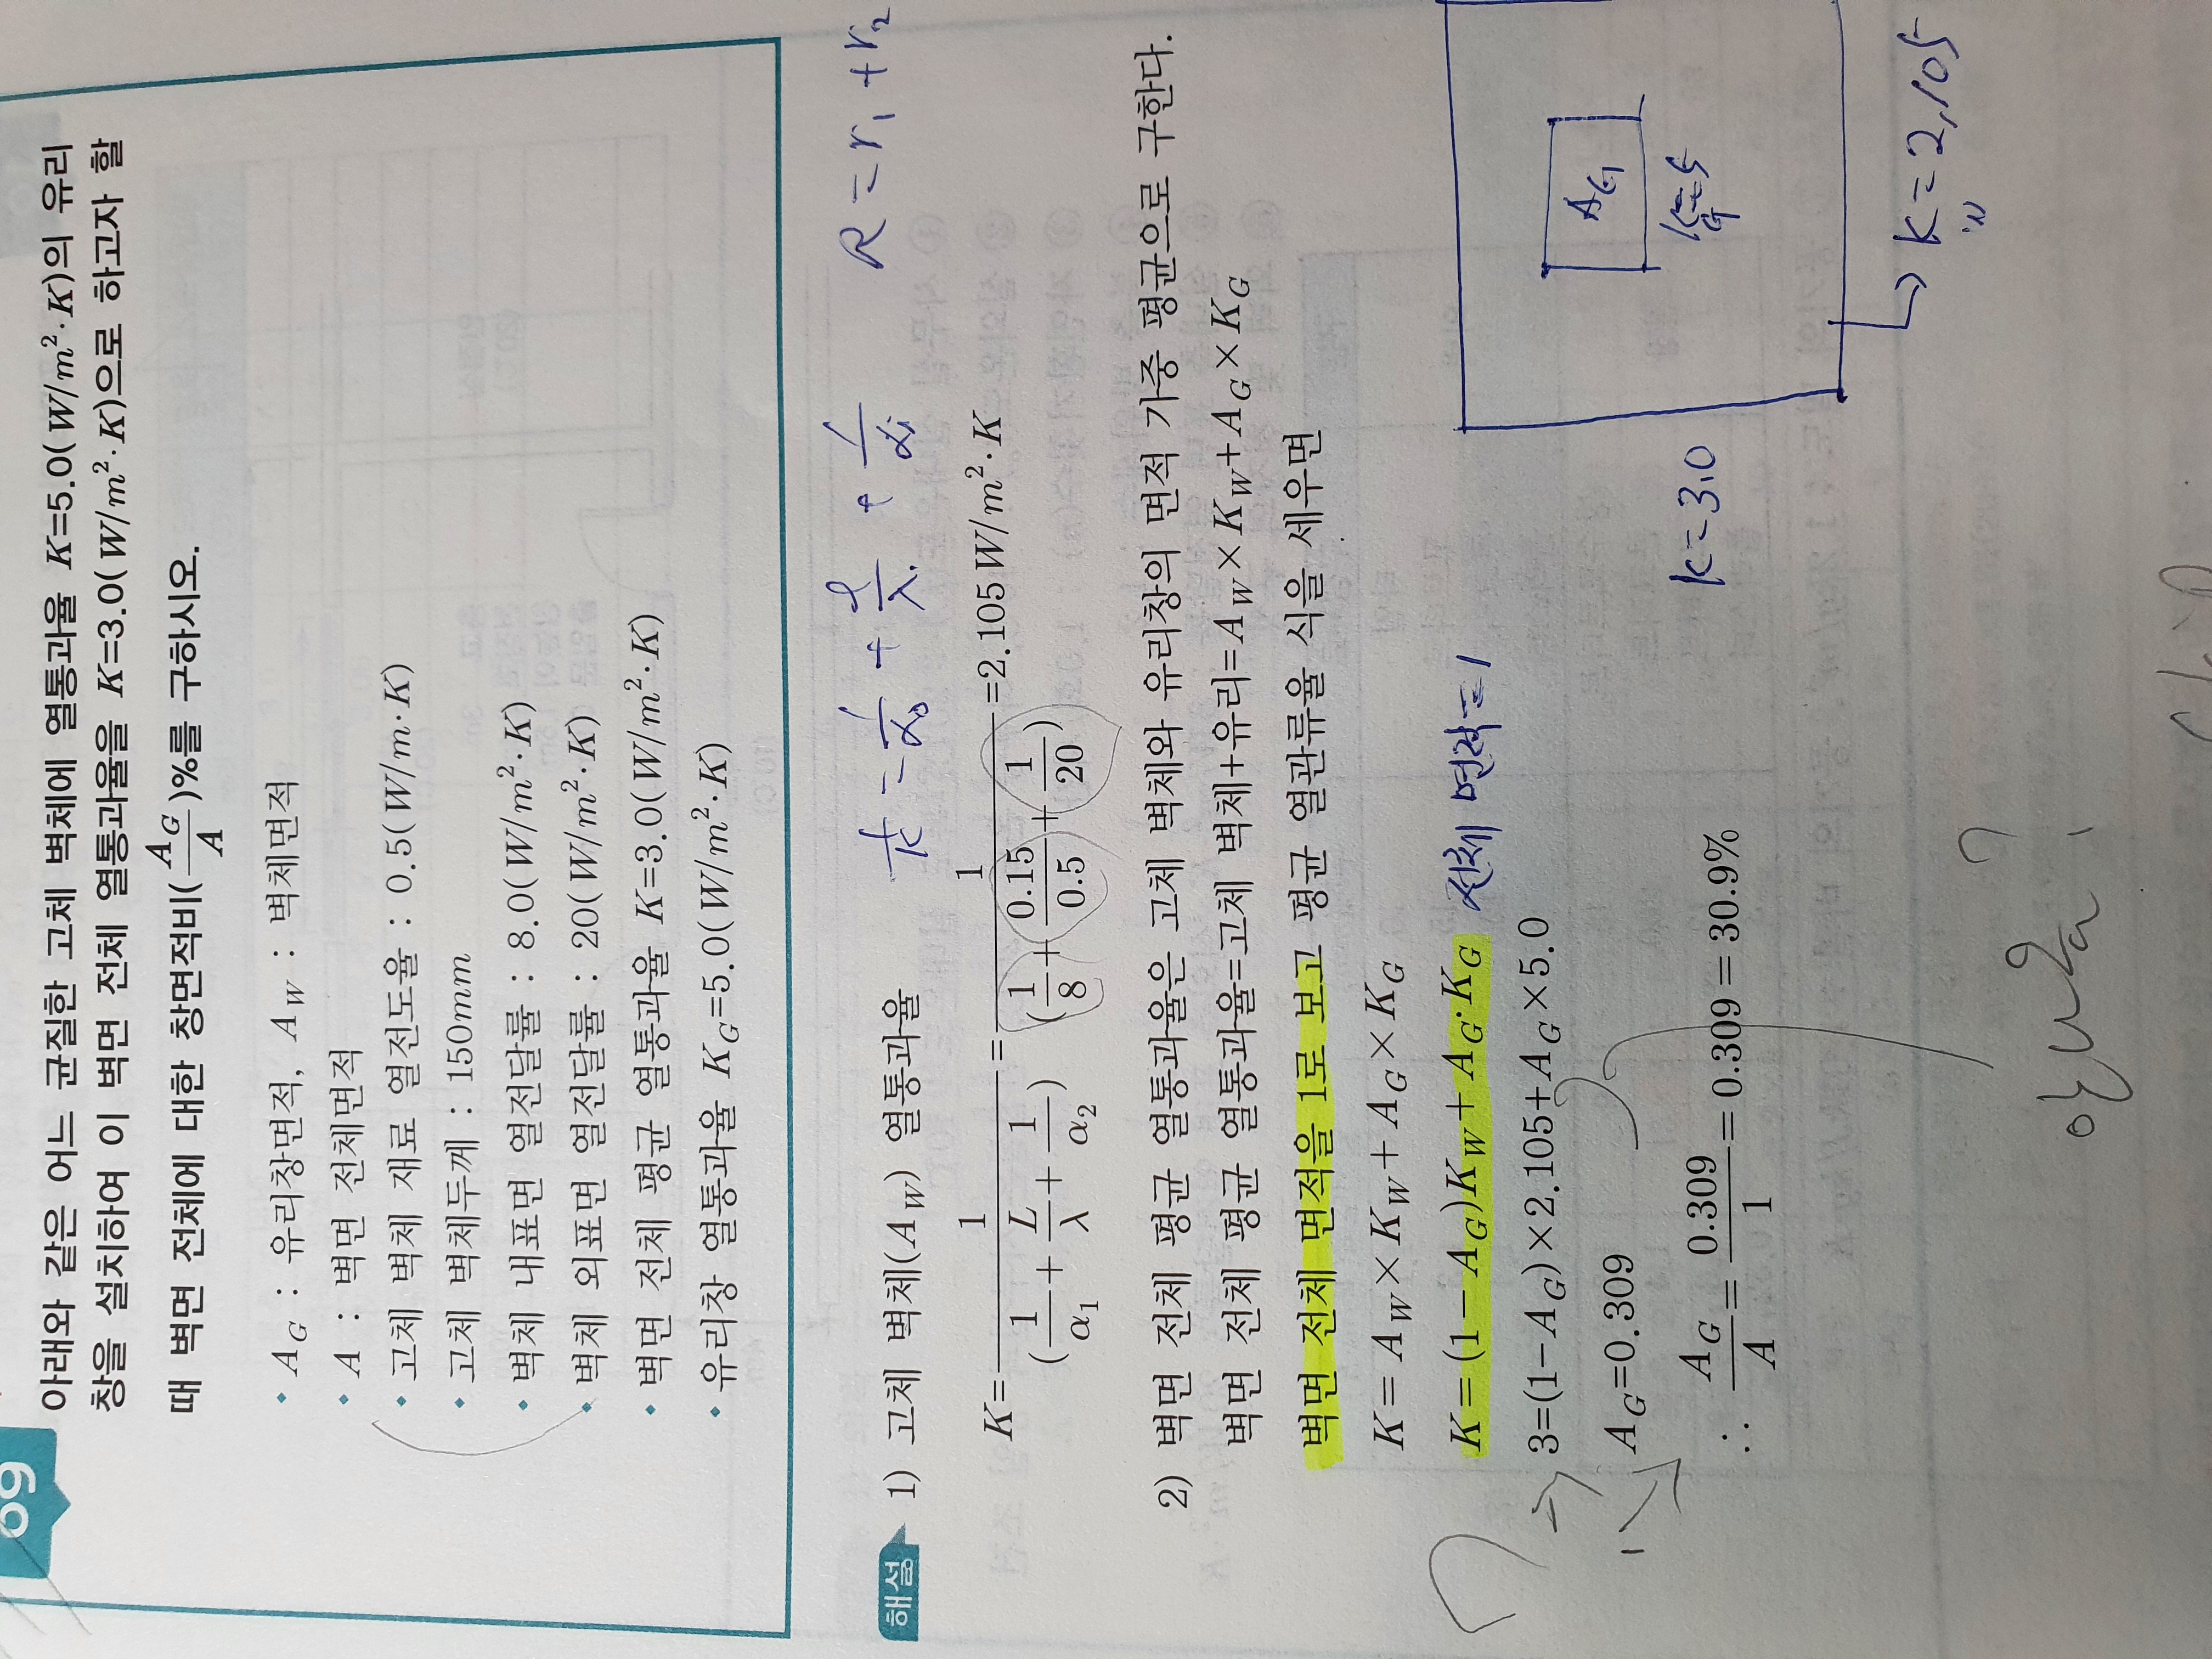 69
아래와 같은 어느 균질한 고체 벽체에 열통과율 K=5.0(W/m²·K)의 유리
창을 설치하여 이 벽면 전체 열통과율을 K=3.0(W/m²·K)으로 하고자 할
때 벽면 전체에 대한 창면적비(A_G/A)%를 구하시오.
• A_G : 유리창면적, A_W : 벽체면적
• A : 벽면 전체면적
• 고체 벽체 재료 열전도율 : 0.5(W/m·K)
• 고체 벽체두께 : 150mm
• 벽체 내표면 열전달률 : 8.0(W/m²·K)
• 벽체 외표면 열전달률 : 20(W/m²·K)
• 벽면 전체 평균 열통과율 K=3.0(W/m²·K)
• 유리창 열통과율 K_G=5.0(W/m²·K)
1/k = 1/α₀ + ℓ/λ + 1/αᵢ R=r₁+r₂
해설 1) 고체 벽체(A_W) 열통과율
K = 1/(1/α₁ + L/λ + 1/α₂) = 1/(1/8 + 0.15/0.5 + 1/20) = 2.105W/m²·K
2) 벽면 전체 평균 열통과율은 고체 벽체와 유리창의 면적 가중 평균으로 구한다.
벽면 전체 평균 열통과율=고체 벽체+유리=A_W×K_W+A_G×K_G
벽면 전체 면적을 1로 보고 평균 열관류율 식을 세우면
K=A_W×K_W+A_G×K_G
K=(1-A_G)K_W+A_G·K_G 전체 면적=1
3=(1-A_G)×2.105+A_G×5.0
A_G=0.309
∴ A_G/A = 0.309/1 = 0.309 = 30.9%
k=3.0
A_G
K_G=5
K_W=2,105